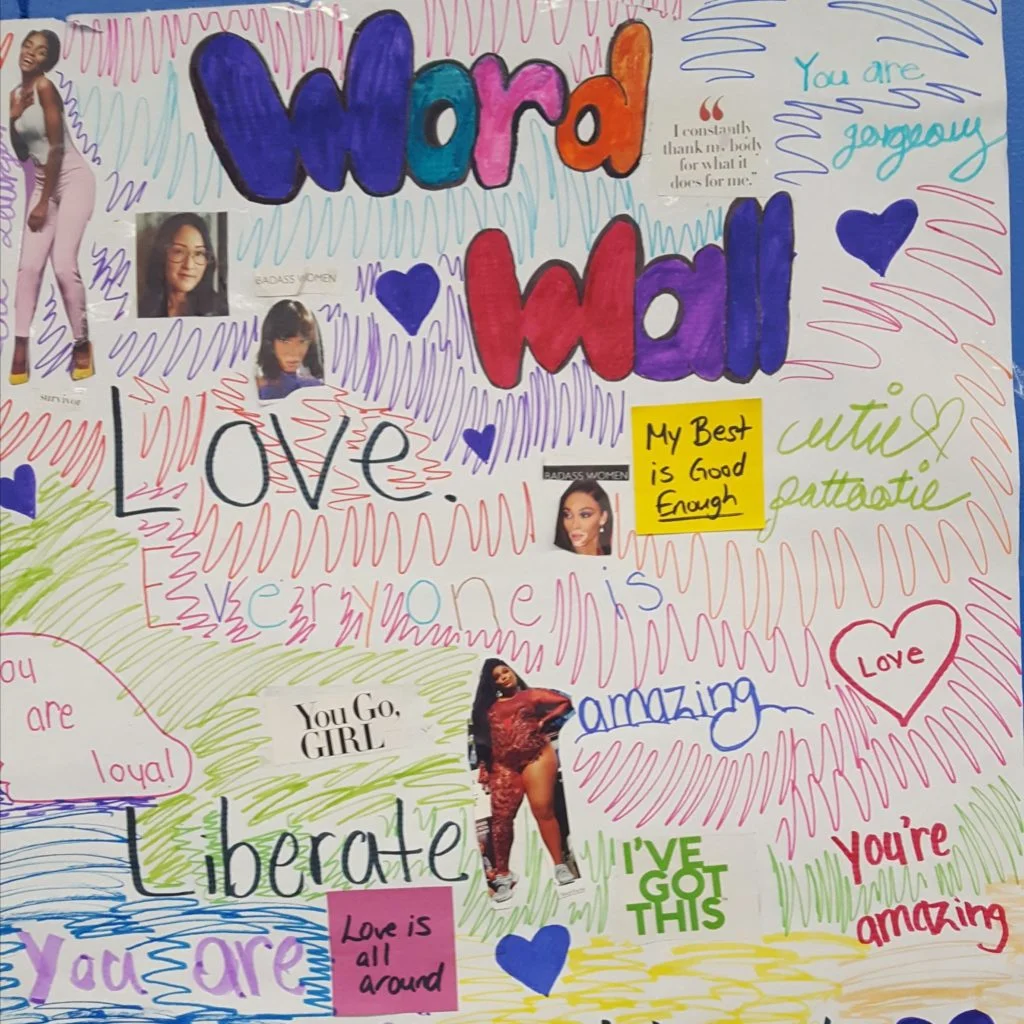 Word
Wall
You are
gorgeous
“I constantly
thank my body
for what it
does for me.”
BADASS WOMEN
survivor
Love.
BADASS WOMEN
My Best
is Good
Enough
cutie
pattootie
Everyone is
amazing
Love
You
are
loyal
You Go,
GIRL
Liberate
I'VE
GOT
THIS
You're
amazing
You are
Love is
all
around